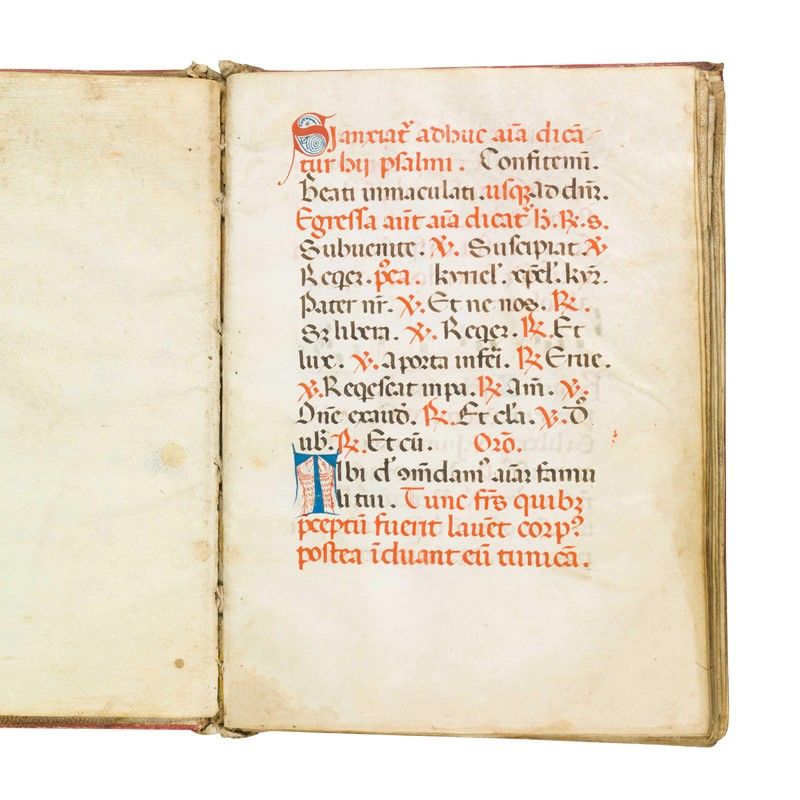 Si anxiat᷑ adhuc aīa dicā
tur hij psalmi. Confitemī.
Beati immaculati. usq; ad dn̄r.
Egressa aūt aīa dicat᷑ h. ℟. s.
Subuenite. ℣. Suscipiat. ℣
Reqer. p̄ea. kyriel'. xp̄el'. kyr̄.
Pater nr̄. ℣. Et ne nos. ℟.
Sꝫ libera. ℣. Reqer. ℟. Et
lux. ℣. a porta inferī. ℟ Erue.
℣. Reqescat in pa. ℟ am̄. ℣.
Dn̄e exaudō. ℟. Et cla. ℣. dō
ub. ℟. Et cū. Orō.
Tibi d' ꝯmdam᷒ aīaꝫ famu
li tui. Tunc frs̄ quibꝫ
p̄ceptū fuerit lauēt corp᷒
postea īduant eū tunicā.